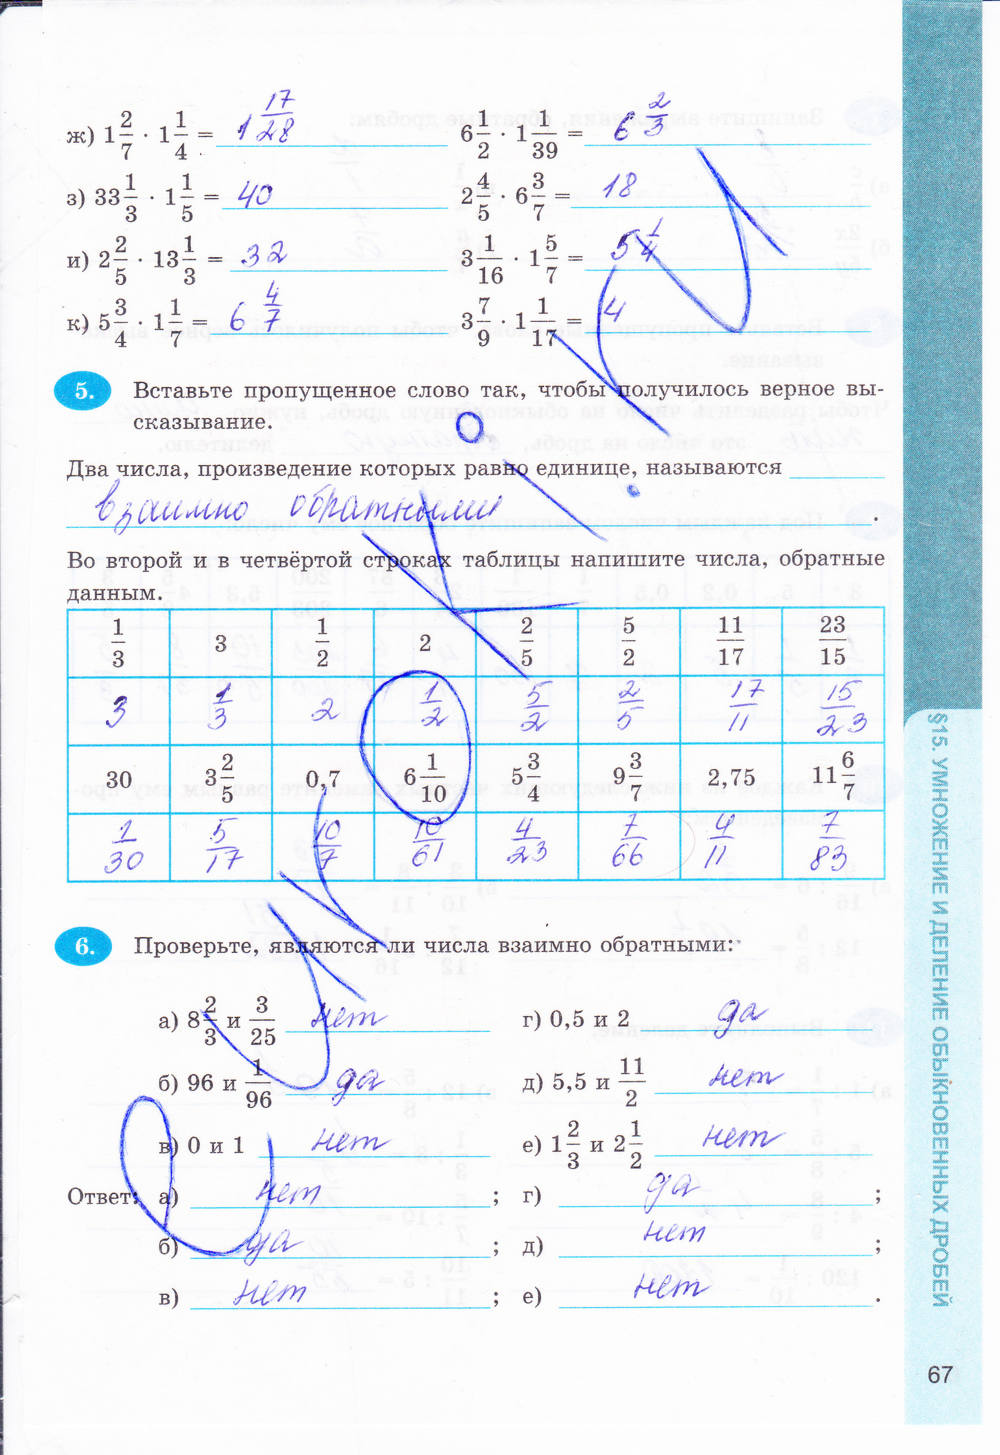 ж) 1 2/7 · 1 1/4 = 1 17/28    6 1/2 · 1 1/39 = 6 2/3
з) 33 1/3 · 1 1/5 = 40    2 4/5 · 6 3/7 = 18
и) 2 2/5 · 13 1/3 = 32    3 1/16 · 1 5/7 = 5 1/4
к) 5 3/4 · 1 1/7 = 6 4/7    3 7/9 · 1 1/17 = 4
5. Вставьте пропущенное слово так, чтобы получилось верное вы-
сказывание.
Два числа, произведение которых равно единице, называются
взаимно обратными .
Во второй и в четвёртой строках таблицы напишите числа, обратные
данным.
1/3 3 1/2 2 2/5 5/2 11/17 23/15
3 1/3 2 1/2 5/2 2/5 17/11 15/23
30 3 2/5 0,7 6 1/10 5 3/4 9 3/7 2,75 11 6/7
1/30 5/17 10/7 10/61 4/23 7/66 4/11 7/83
6. Проверьте, являются ли числа взаимно обратными:
а) 8 2/3 и 3/25 нет    г) 0,5 и 2 да
б) 96 и 1/96 да    д) 5,5 и 11/2 нет
в) 0 и 1 нет    е) 1 2/3 и 2 1/2 нет
Ответ: а) нет ;    г) да ;
б) да ;    д) нет ;
в) нет ;    е) нет .
§15. УМНОЖЕНИЕ И ДЕЛЕНИЕ ОБЫКНОВЕННЫХ ДРОБЕЙ
67